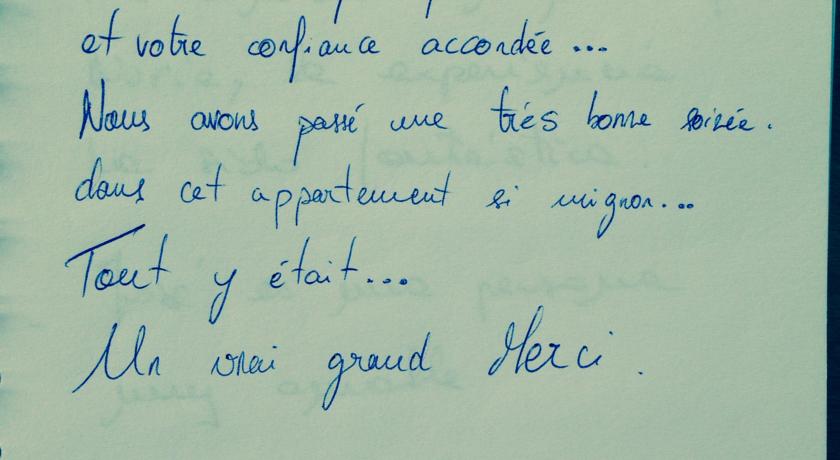 et votre confiance accordée...
Nous avons passé une trés bonne soirée.
dans cet appartement si mignon...
Tout y était...
Un vrai grand Merci.